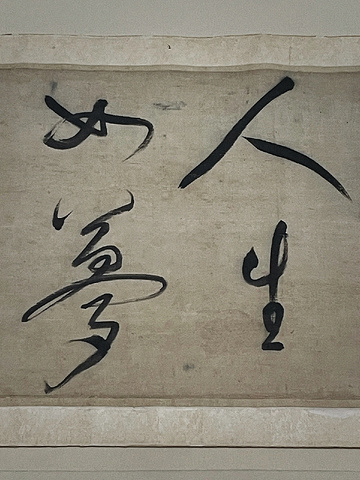 人生
如夢